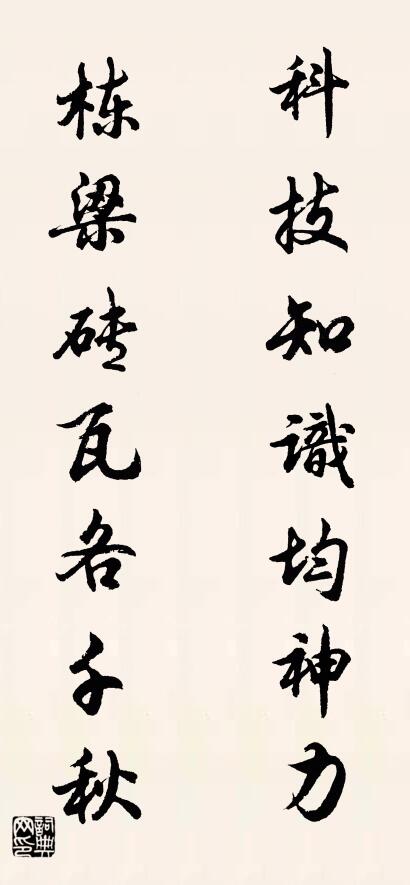 科技知識均神力
栋梁砖瓦各千秋
詞典网印